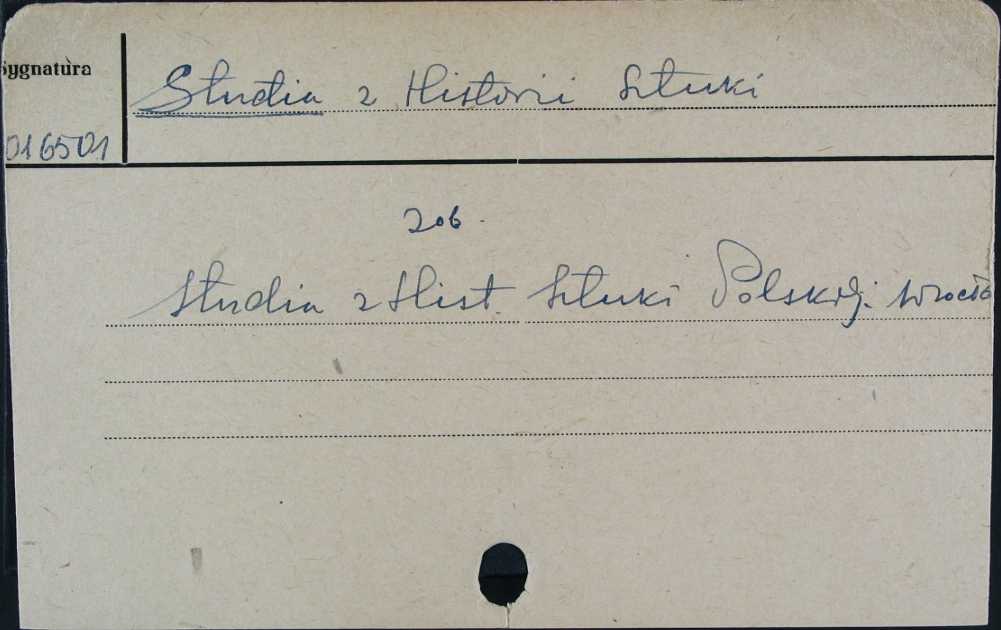 Sygnatura
Studia z Historii Sztuki
016501
Zob.
Studia z Hist. Sztuki Polskiej. Wrocła